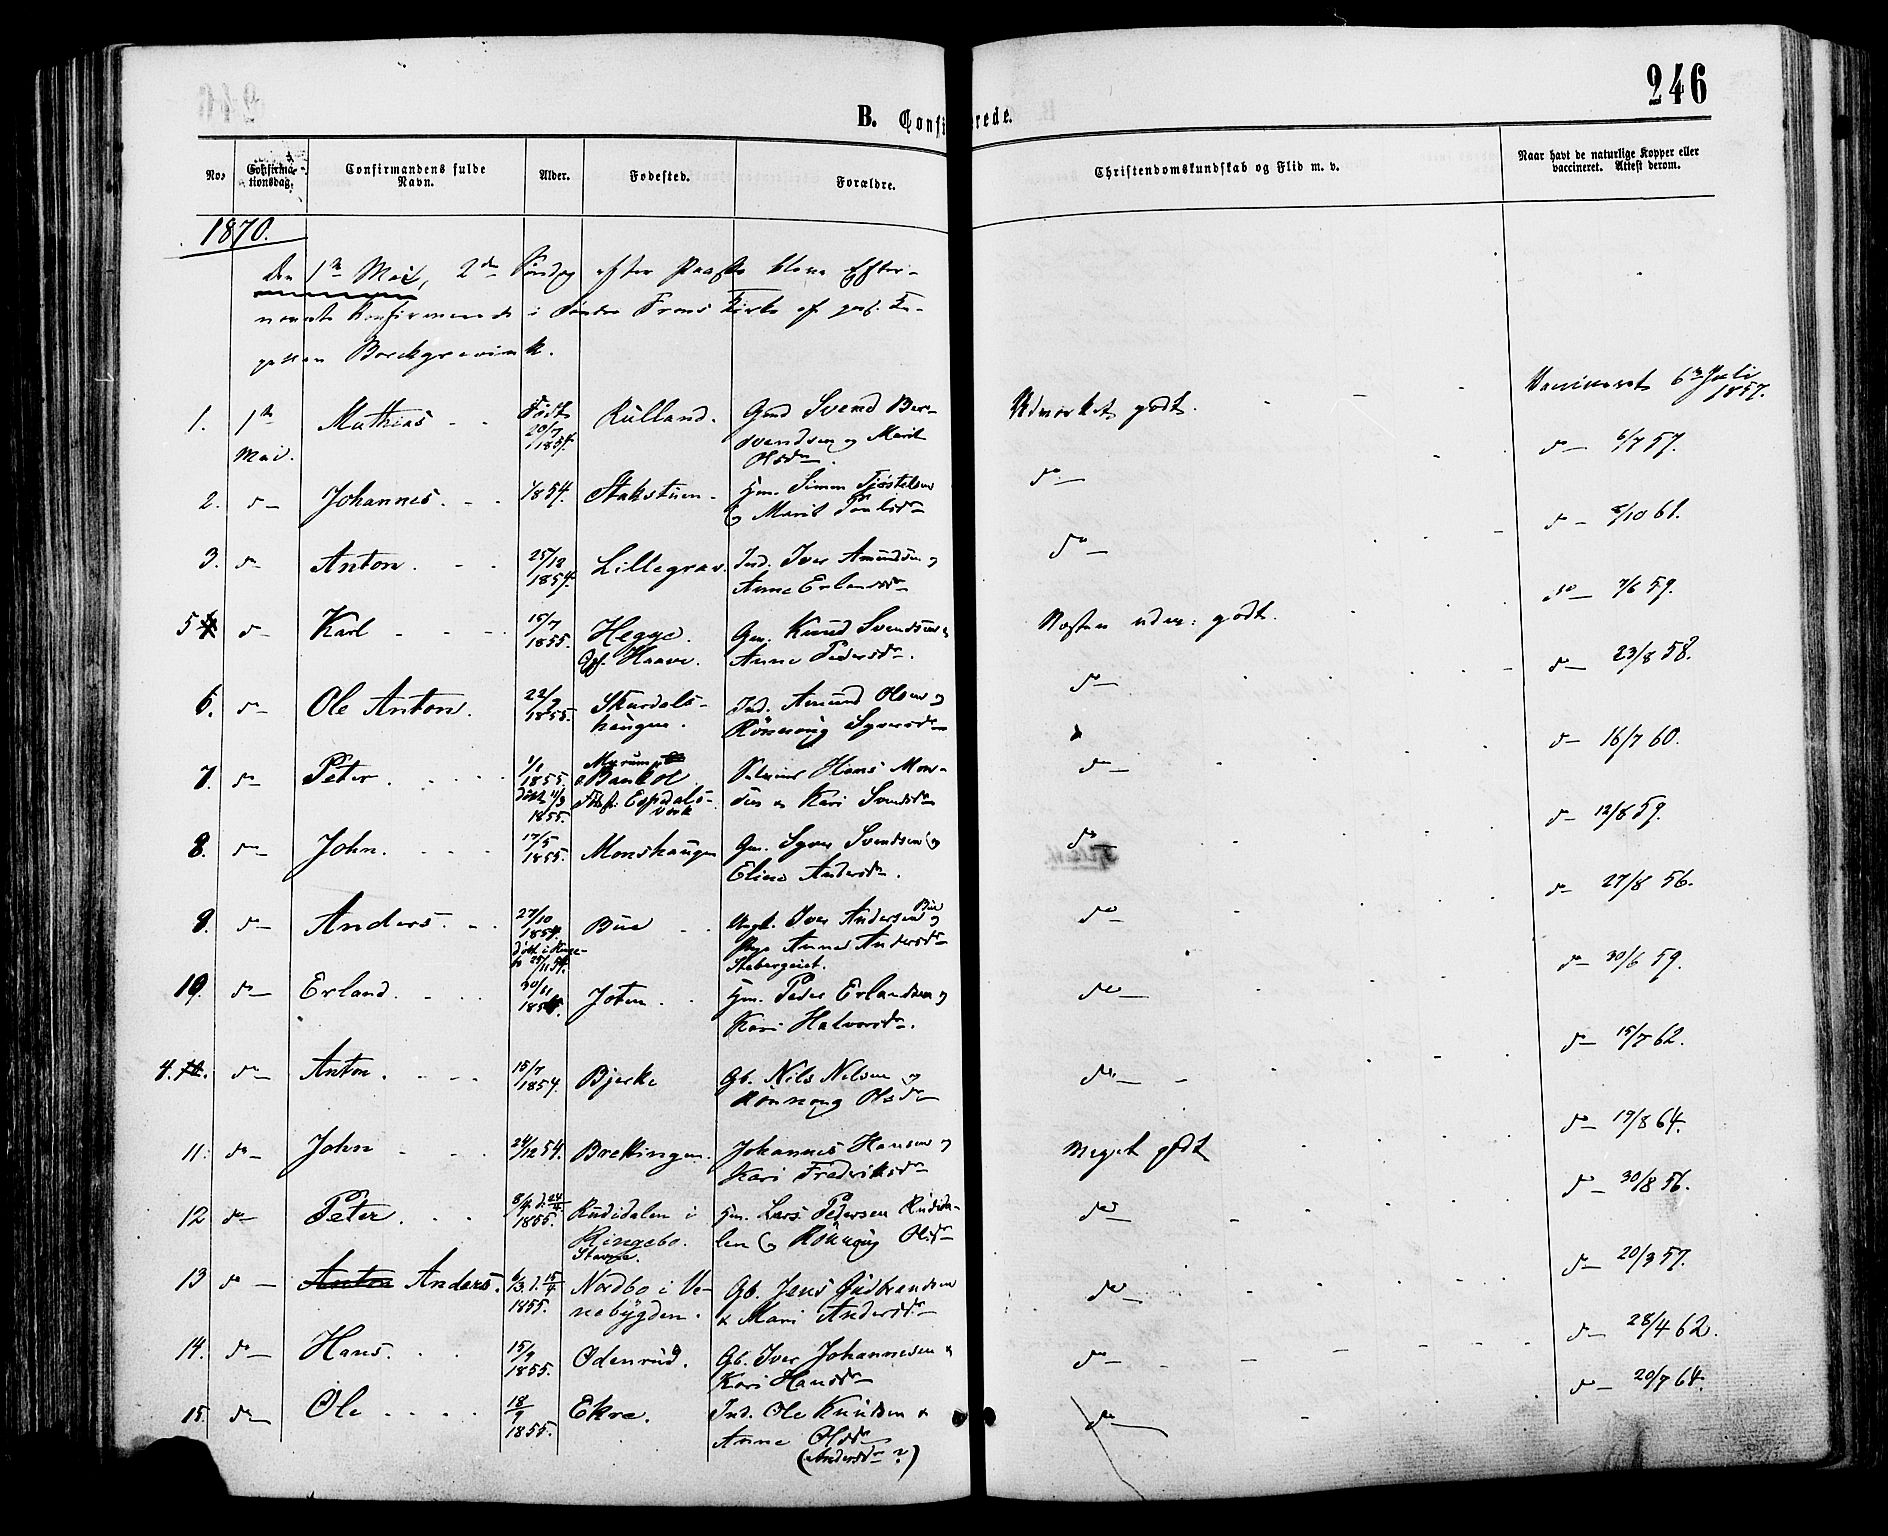 246
B. Confi
rede.
No. Confirmationsdag. Confirmandens fulde Navn. Alder. Fødested. Forældre. Christendomskundskab og Flid m. v. Naar havt de naturlige Kopper eller vaccineret. Attest derom.
1870.
den 1ste Mai, 2den Søndag efter Paaske bleve efter-
nævnte konfirmerede i Søndre Frons Kirke af
Borchgrevink.
1. 1ste Mai. Mathias Født 20/7 1854. Rulland. Svend Ber-
dvendsen og Marit
Olsdr. Udmærket godt. Vaccineret 6te Juli 1857.
2. do Johannes. 1854. Stakstuen Hm. Simen Tjøstelsen
og Marit do do 6/7 57.
3. do Anton. 25/12 1854. Lillegrav. Ind. Iver Amundsen og
Anne Erlandsdr do do 8/10 61.
5 4 do Karl 15/7 1855. Hegge. Opf. Haave. Gm. Knud Svendsen &
Anne Pedersdr. Næsten udm: godt. do 7/6 59.
6. do Ole Anton. 22/9 1855. Skurdals-
haugen. Ind. Amund Olsen og
Rönnoug Syversdr do do 23/8 58.
7 do Peter. 1/1 1855. döbt 11/3 1855. Myrum
Bankol
Espedals-
værk Hans Mon-
sen & Kari Svendsdr do do 16/7 60.
8. do John. 17/5 1855. Monshaugen Gm. Syver Svendsen og
Eline Andersdr. do do 12/8 59.
9. do Anders. 27/10 1854. döbt i Ringe-
bo 25/11 54. Bue Ungk. Iver Andersen Bue og
Pige Anne Andersdr
Stebergeiet. do do 27/8 56.
10. do Erland. 30/11 185 Joten. Hm. Peder Erlandsen og
Kari Halvorsdr. do do 30/6 59.
4. do Anton. 15/7 1854. Bjerke Gb. Nils Nilsen og
Rönnoug Olsdr do do 15/7 62.
11. do John 24/12 54. Brekkingen. Johannes Hansen og
Kari Frederiksdr Meget godt do 19/8 64.
12 do Peter. 8/4 d. 24/4 1855. Rudidalen i
Ringebo. Hm. Lars Pedersen Rudida-
len og Rönnoug Olsdr do do 30/8 56.
13 do Anton Anders. 6/3. d. 15/4 1855. Stavne.
Nordbo i Ve-
nebygden. Gb. Jens Gudbrandsen
& Mari Andersdr do do 20/3 57.
14. do Hans. 15/9 1855. Odenrud. Gb. Iver Johannesen &
Kari Hansdr do do 28/4 62.
15. do Ole 18/9 1855. Ekre. Ind. Ole Knudsen &
Anne Olsdr
(Andersdr ?) do do 20/7 64.